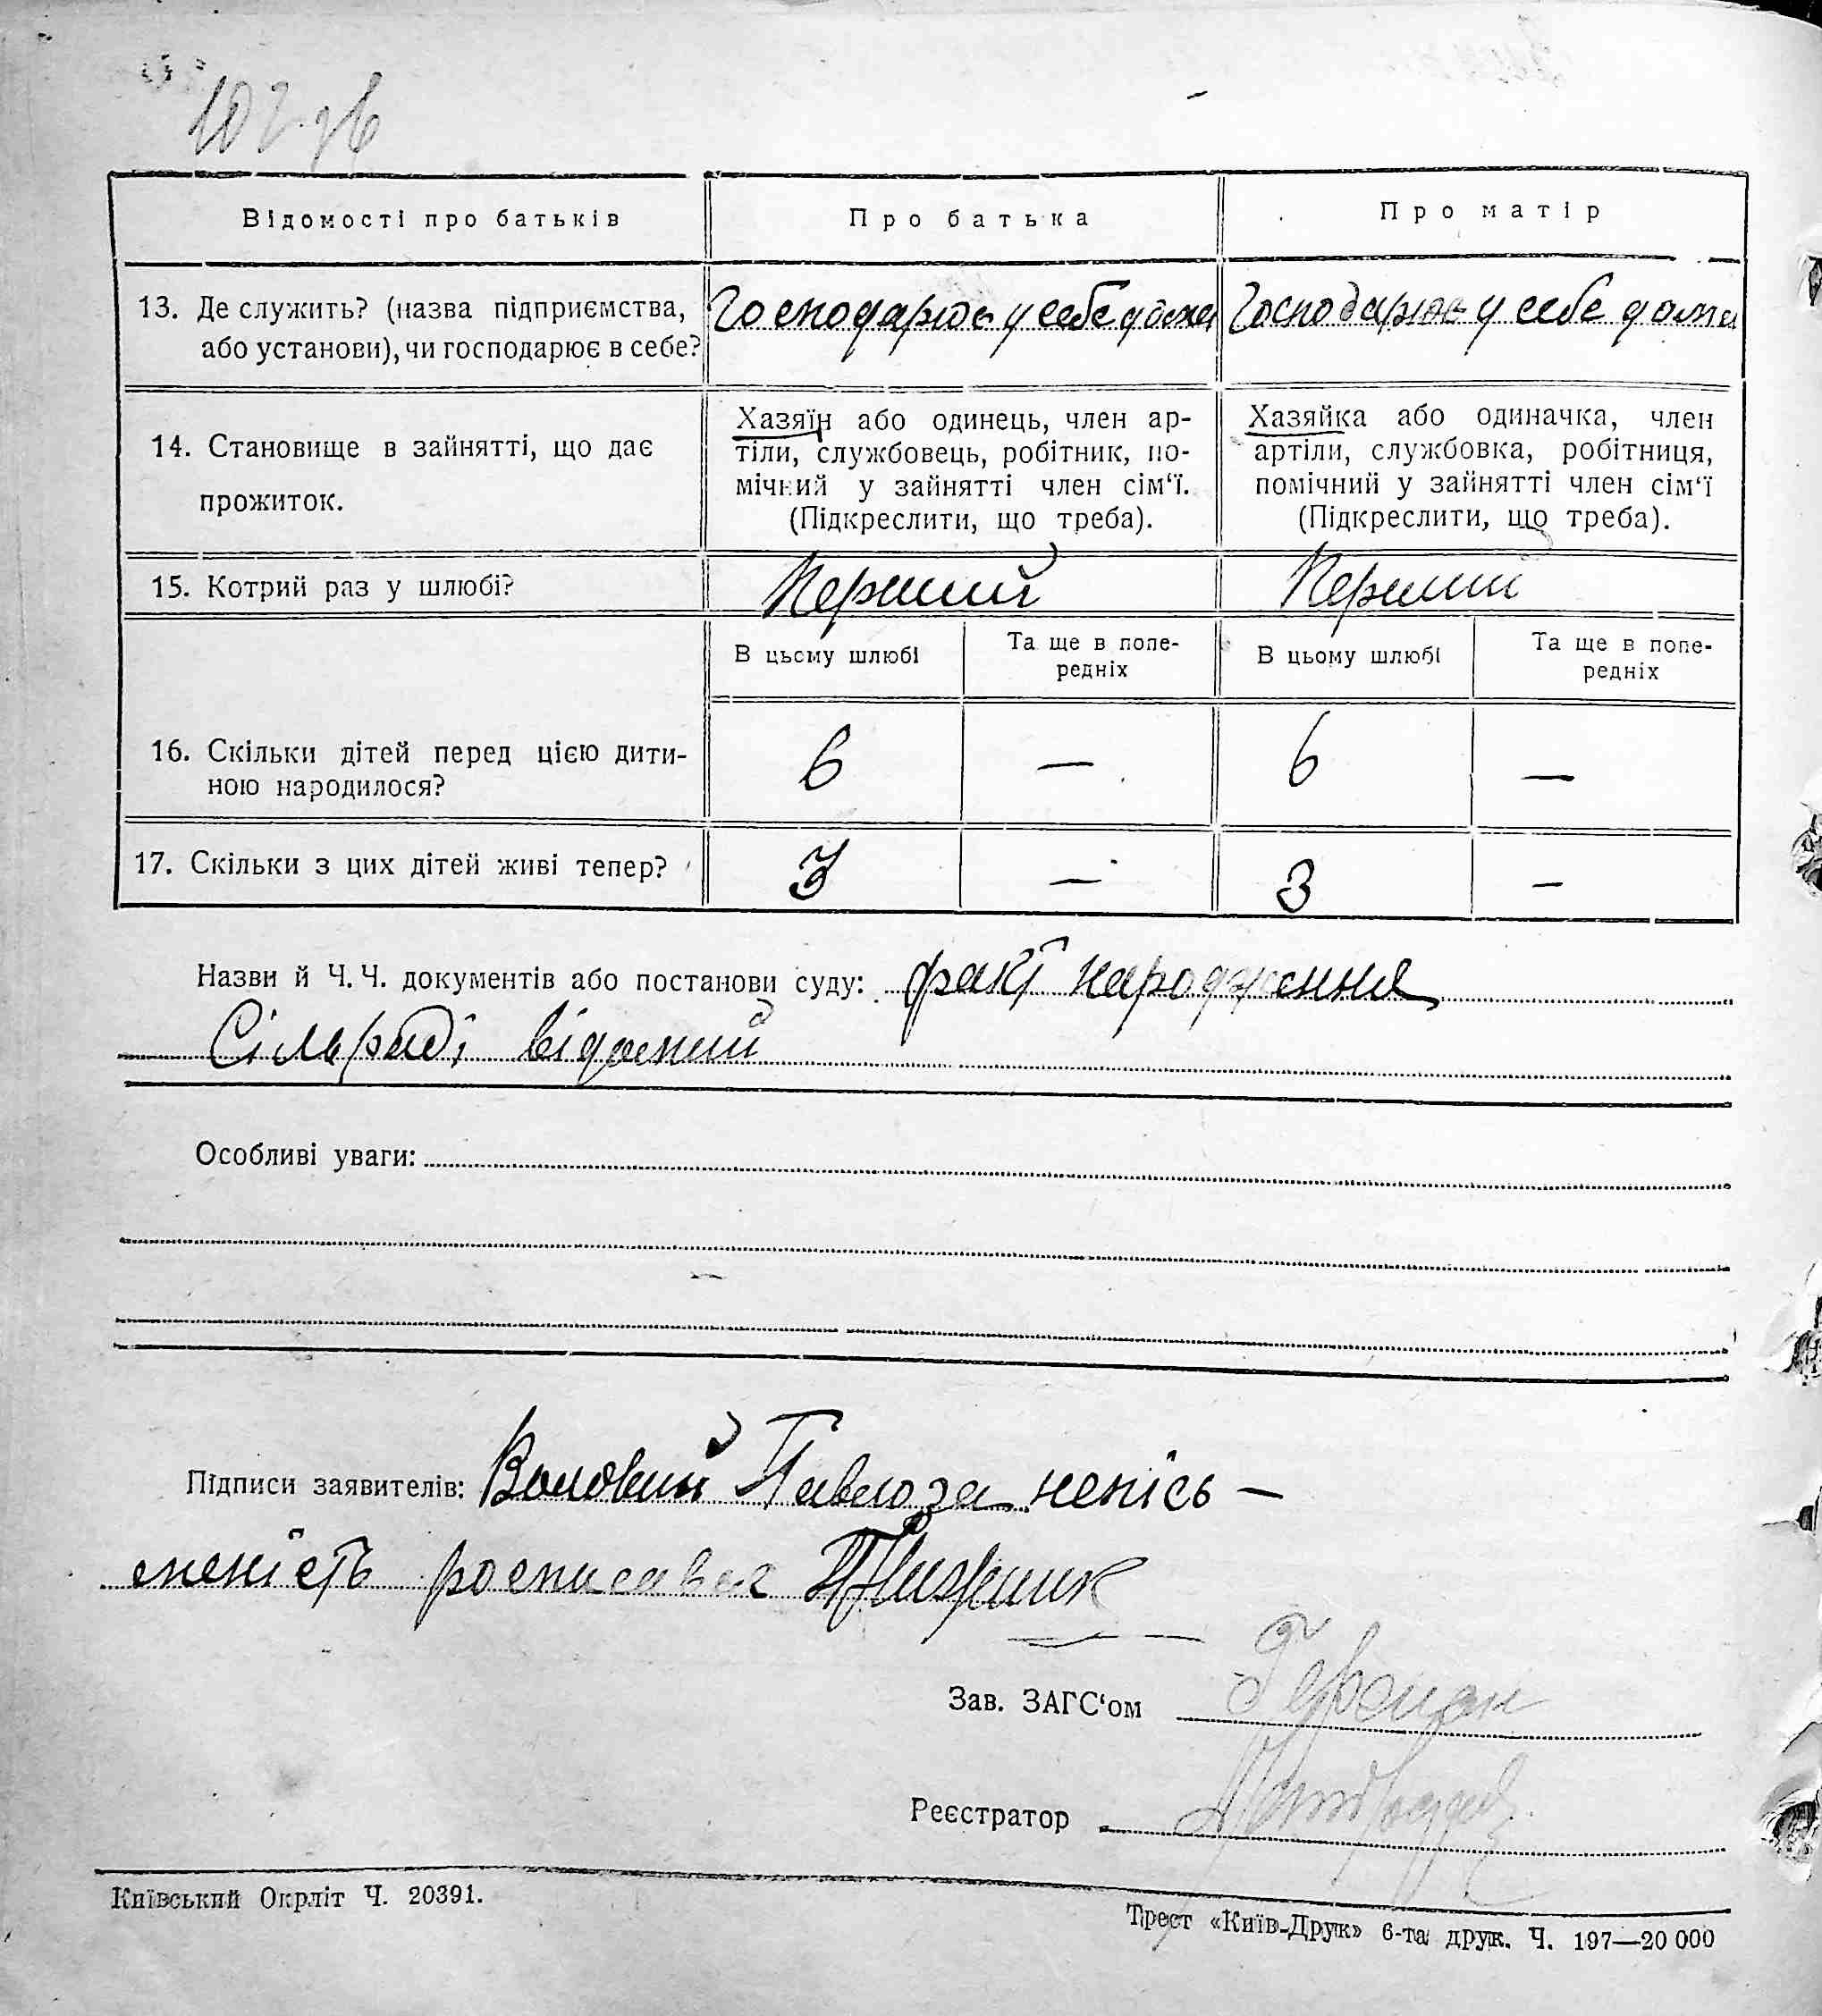 102 зв
Відомості про батьків
Про батька
Про матір
13. Де служить? (назва підприємства,
або установи), чи господарює в себе?
Господарює у себе дома
Господарює у себе дома
14. Становище в зайнятті, що дає
прожиток.
Хазяїн або одинець, член ар-
тіли, службовець, робітник, по-
мічний у зайнятті член сім‘ї.
(Підкреслити, що треба).
Хазяйка або одиначка, член
артіли, службовка, робітниця,
помічний у зайнятті член сім‘ї
(Підкреслити, що треба).
15. Котрий раз у шлюбі?
Перший
Перший
В цьому шлюбі
Та ще в попе-
редніх
В цьому шлюбі
Та ще в попе-
редніх
16. Скільки дітей перед цією дити-
ною народилося?
6
—
6
—
17. Скільки з цих дітей живі тепер?
3
—
3
—
Назви й Ч. Ч. документів або постанови суду: факт народження
Сільраді відомий
Особливі уваги:
Підписи заявителів: Воловий Павло за непісь-
меність росписавсь
Зав. ЗАГС‘ом Герсман
Реєстратор
Київський Окрліт Ч. 20391.
Трест «Київ-Друк» 6-та друк. Ч. 197—20 000